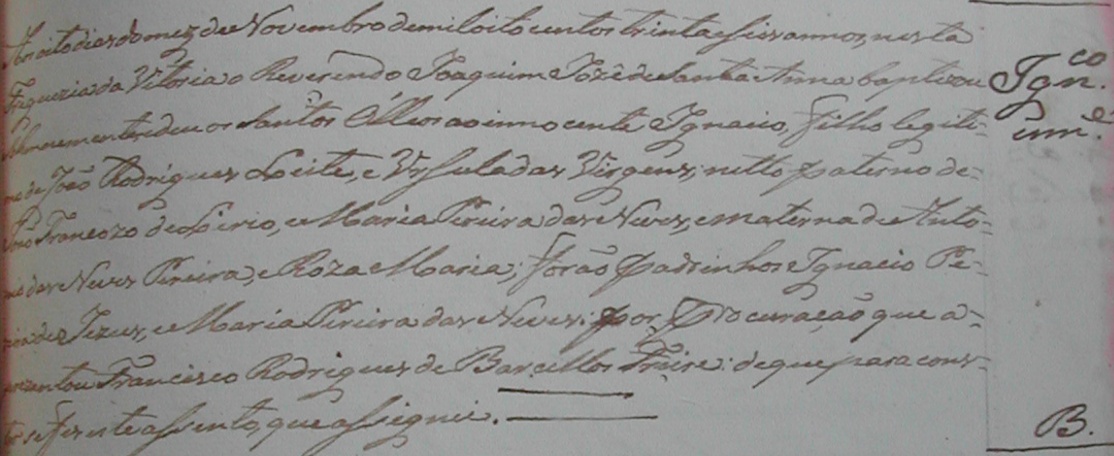 Aos oito dias do mez de Novembro de mil oito centos trinta e seis annos, nesta
Freguezia da Vitoria o Reverendo Joaquim Jozé de Santa Anna baptizou
Solemnemente, e deu os Santos Olleos ao innocente Ignacio, filho legiti-
mo de João Rodrigues Leite, e Ursula das Virgens; netto paterno de
Francozo de Lirio, e Maria Pereira das Neves, e materna de Anto-
nio das Neves Pereira, e Roza Maria; forão padrinhos Ignacio Pe-
de Jezus, e Maria Pereira das Neves; por Procuração que a-
prezentou Francisco Rodrigues de Barcellos Freire: de que para cons-
tar se fez este assento, que assignei.
Ign.co
inn.e
B.